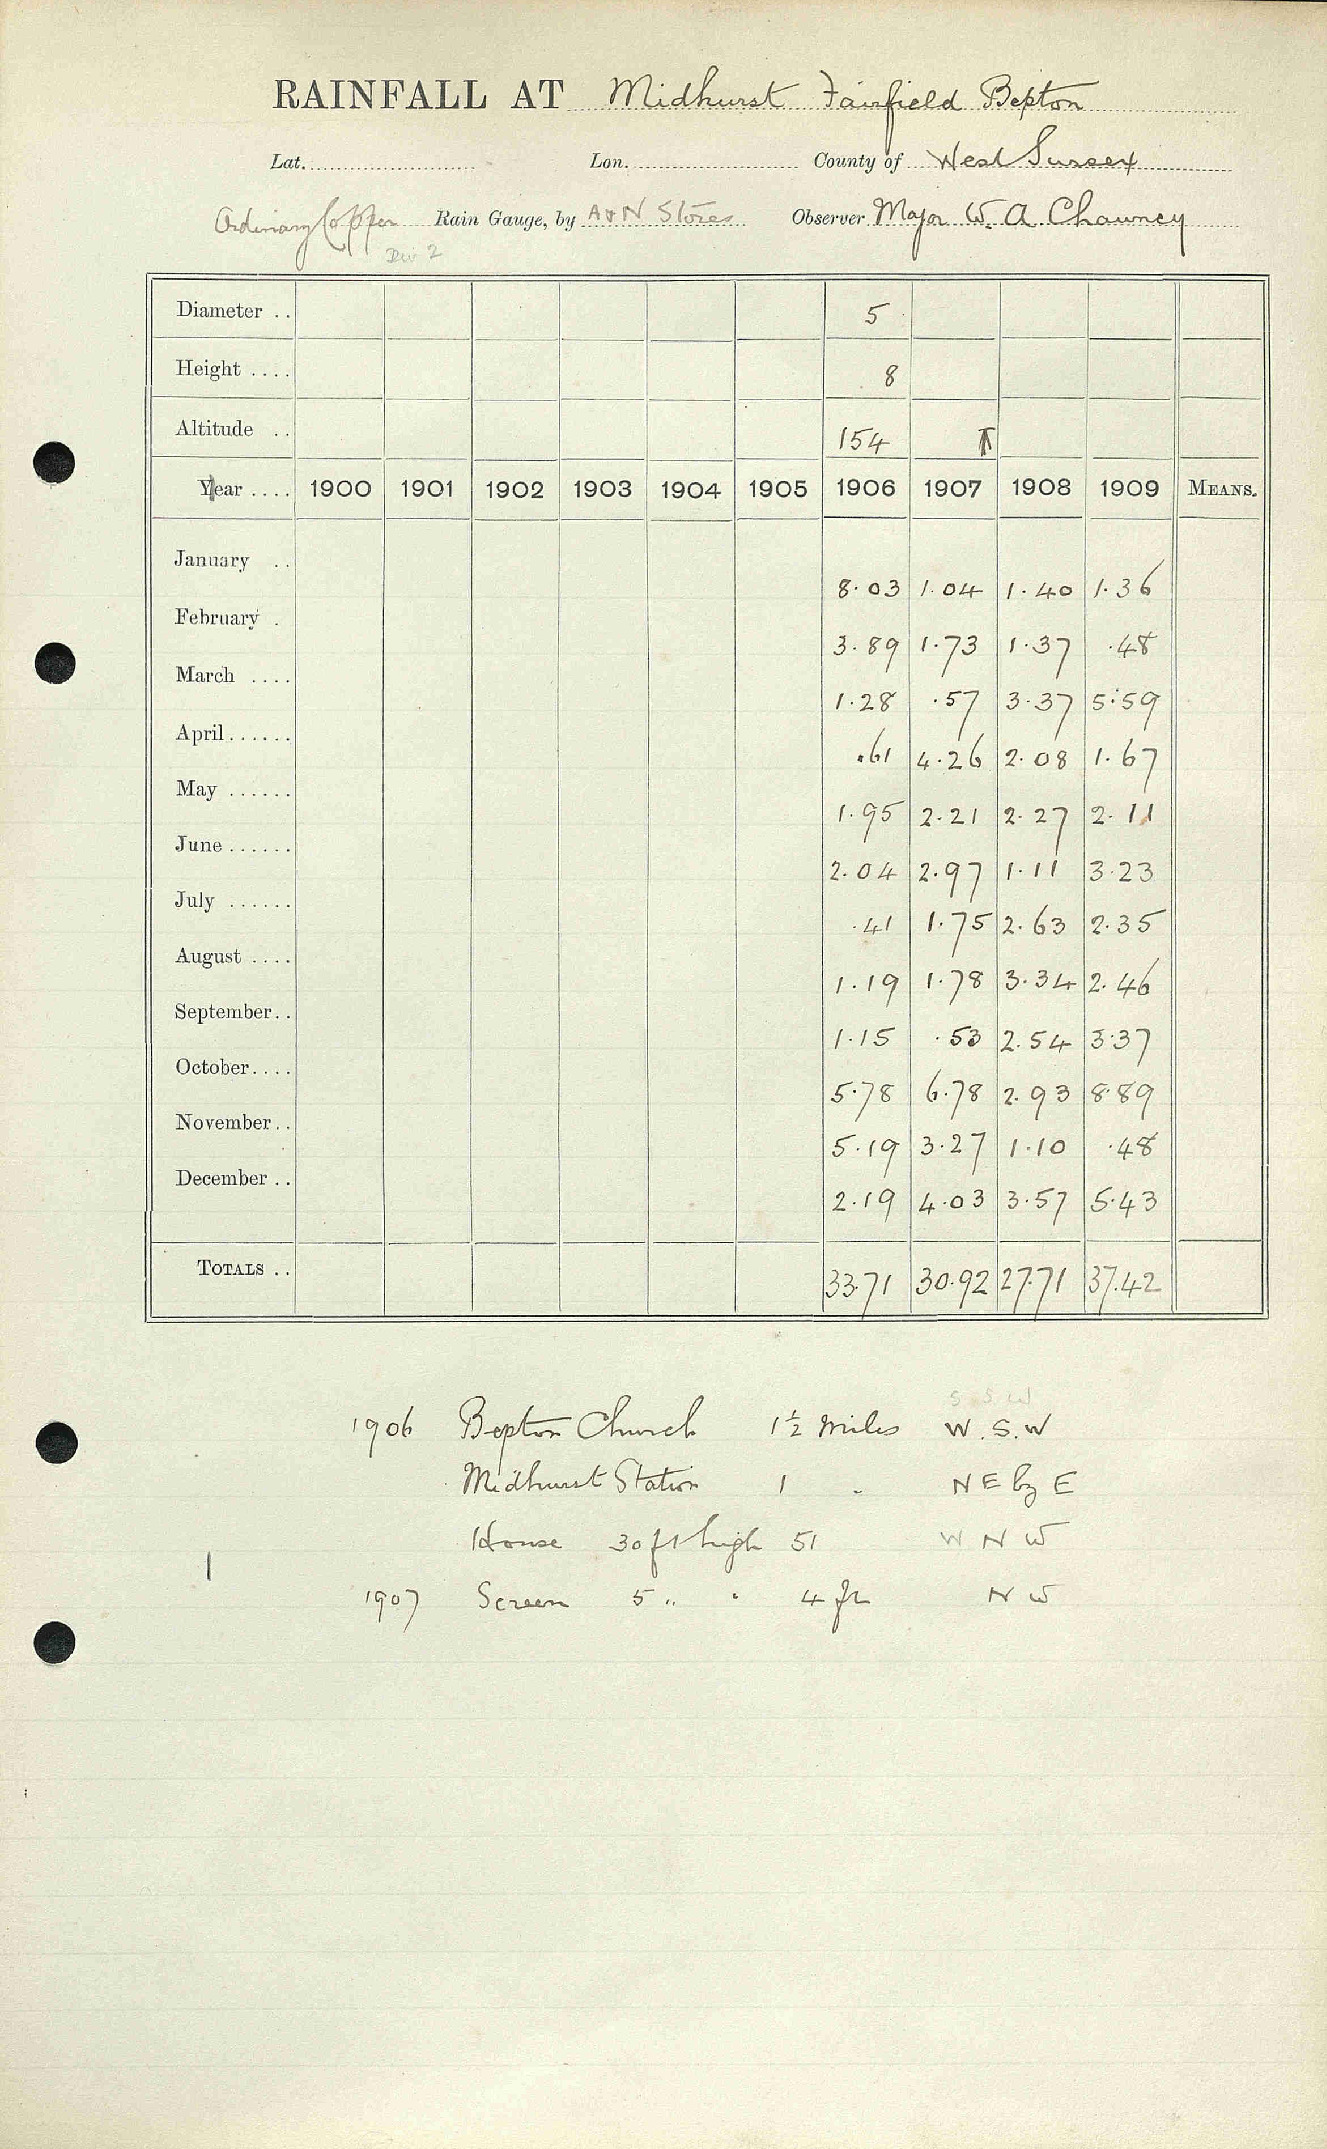 RAINFALL AT Midhurst Fairfield Bepton
Lat. Lon. County of West Sussex
Ordinary Copper Rain Gauge, by A & N Stores Observer Major W. A. Chauncy
Dev 2
Diameter .. 5
Height .... 8
Altitude .. 154
Year .... 1900 1901 1902 1903 1904 1905 1906 1907 1908 1909 MEANS.
January .. 8.03 1.04 1.40 1.36
February . 3.89 1.73 1.37 .48
March .... 1.28 .57 3.37 5.59
April...... .61 4.26 2.08 1.67
May ...... 1.95 2.21 2.27 2.11
June...... 2.04 2.97 1.11 3.23
July ...... .41 1.75 2.63 2.35
August .... 1.19 1.78 3.34 2.46
September.. 1.15 .53 2.54 3.37
October.... 5.78 6.78 2.93 8.89
November.. 5.19 3.27 1.10 .48
December .. 2.19 4.03 3.57 5.43
TOTALS .. 33.71 30.92 27.71 37.42
S S W
1906 Bepton Church 1½ Miles W.S.W
Midhurst Station 1 " NE by E
House 30 ft high 51 W N W
1907 Screen 5 " " 4 ft N W